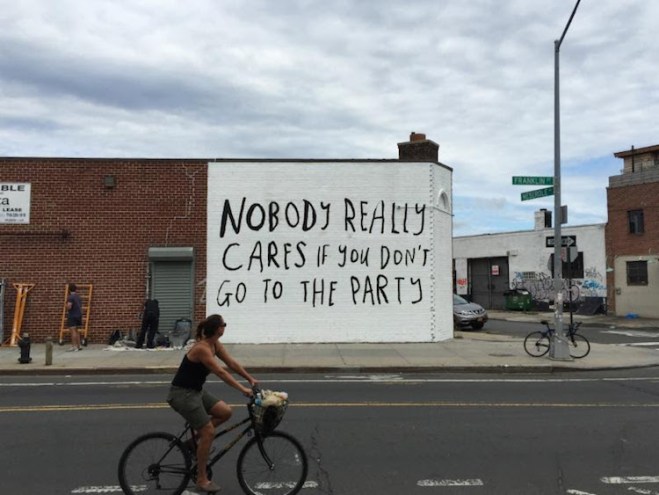 NOBODY REALLY
CARES IF YOU DON'T
GO TO THE PARTY
BLE
ta
LEASE
FRANKLIN ST